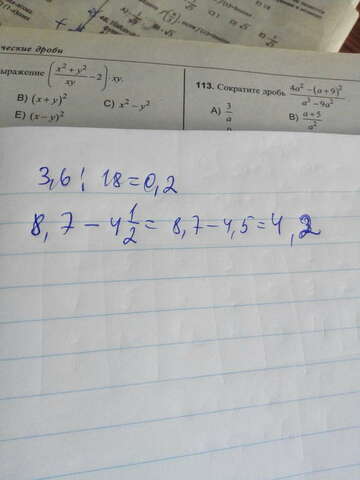 ческие дроби
выражение (x² + y² / xy − 2) xy.
B) (x + y)² C) x² − y²
E) (x − y)²
113. Сократите дробь 4a² − (a + 9)² / a³ − 9a²
A) 3 / a B) a + 5 / a²
3,6 : 18 = 0,2
8,7 − 4 1/2 = 8,7 − 4,5 = 4,2